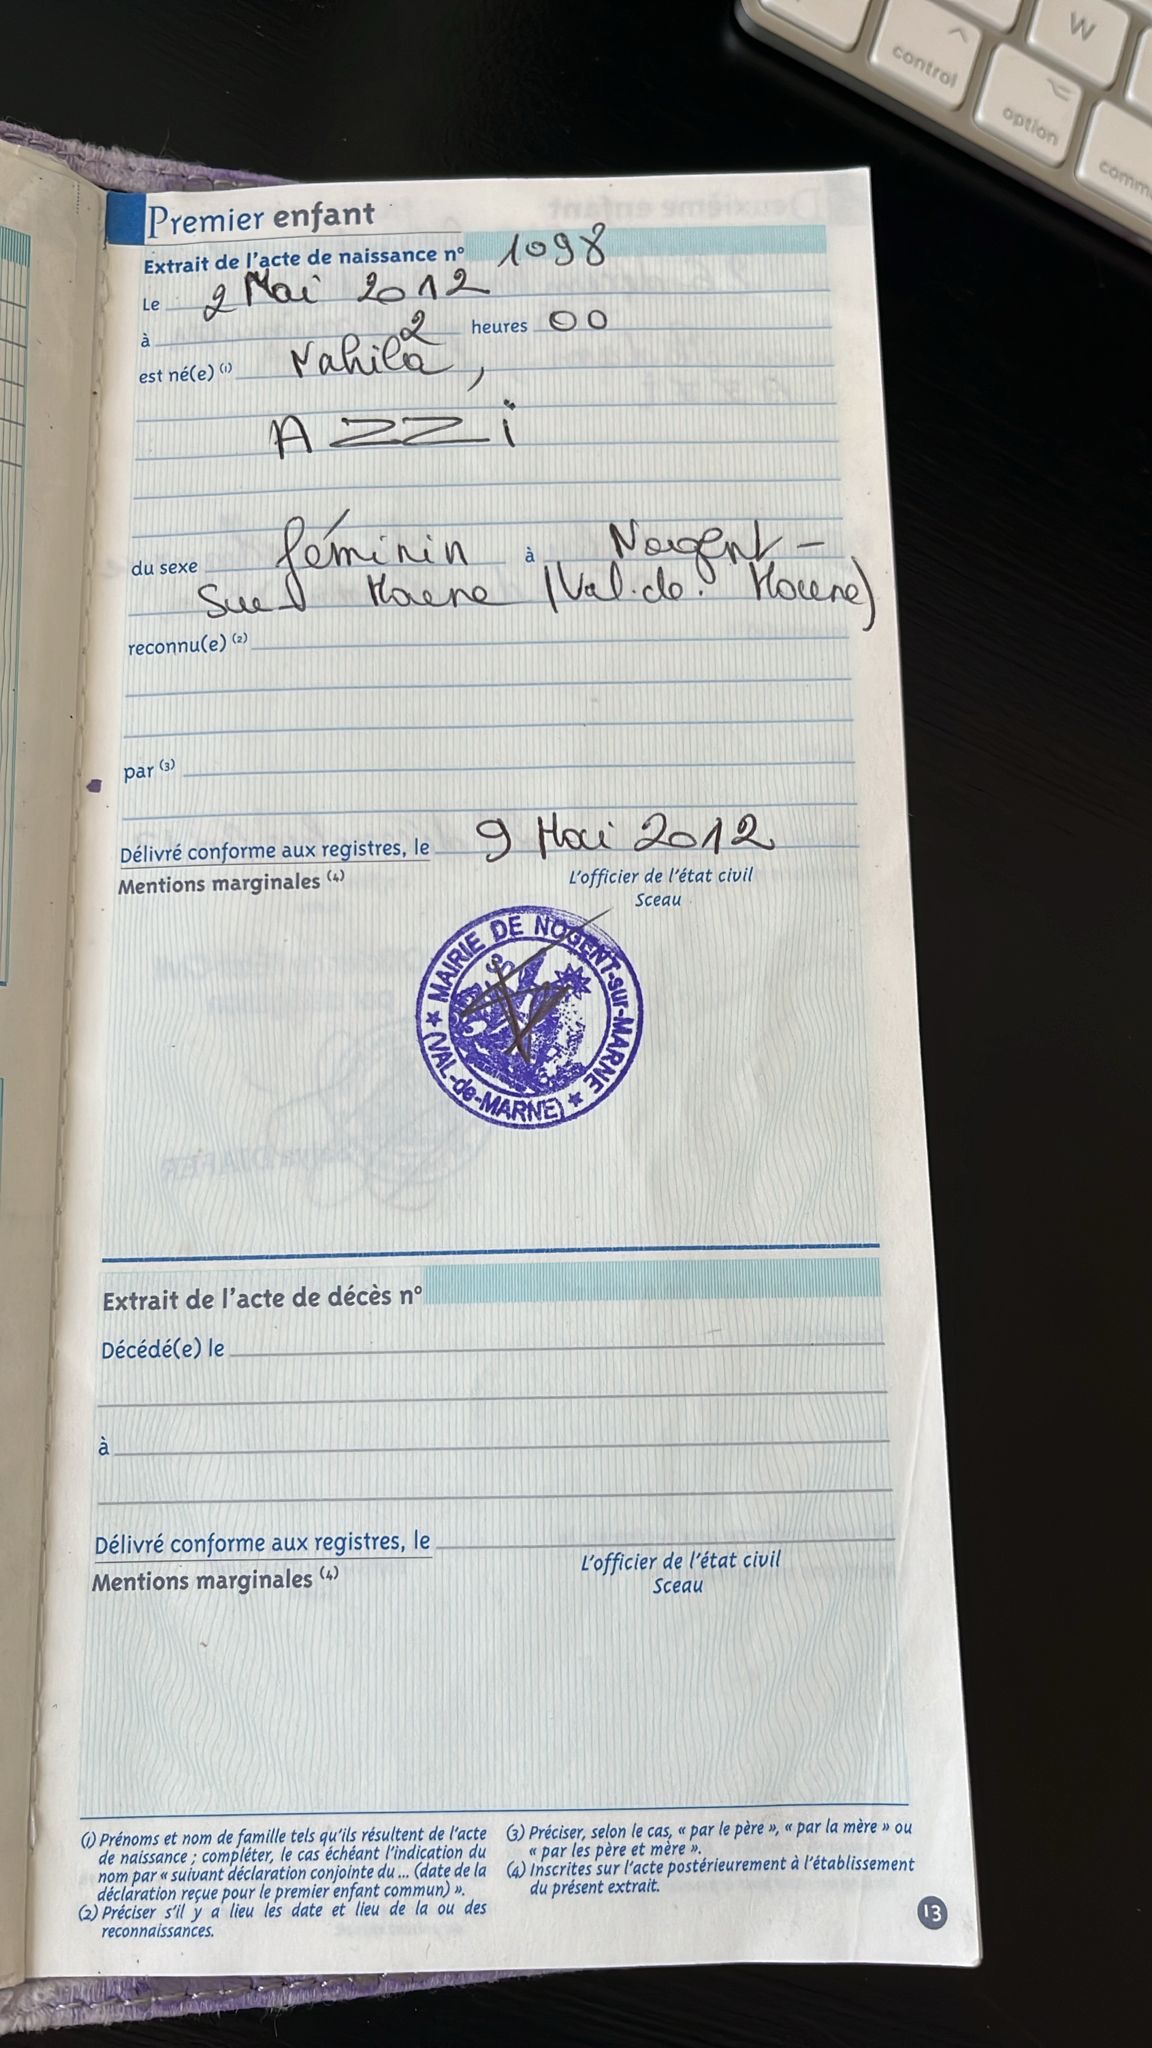 W
control
option
comm
Premier enfant
Extrait de l'acte de naissance n° 1098
Le 2 Mai 2012
à 2 heures 00
est né(e) (1) Nahila,
AZZi
du sexe féminin à Nogent-
Sur Marne (Val.de. Marne)
reconnu(e) (2)
par (3)
Délivré conforme aux registres, le 9 Mai 2012
Mentions marginales (4)
L'officier de l'état civil
Sceau
MAIRIE DE NOGENT-sur-MARNE
(VAL-de-MARNE)
Extrait de l'acte de décès n°
Décédé(e) le
à
Délivré conforme aux registres, le
Mentions marginales (4)
L'officier de l'état civil
Sceau
(1) Prénoms et nom de famille tels qu'ils résultent de l'acte
de naissance ; compléter, le cas échéant l'indication du
nom par « suivant déclaration conjointe du ... (date de la
déclaration reçue pour le premier enfant commun) ».
(2) Préciser s'il y a lieu les date et lieu de la ou des
reconnaissances.
(3) Préciser, selon le cas, « par le père », « par la mère » ou
« par les père et mère ».
(4) Inscrites sur l'acte postérieurement à l'établissement
du présent extrait.
13